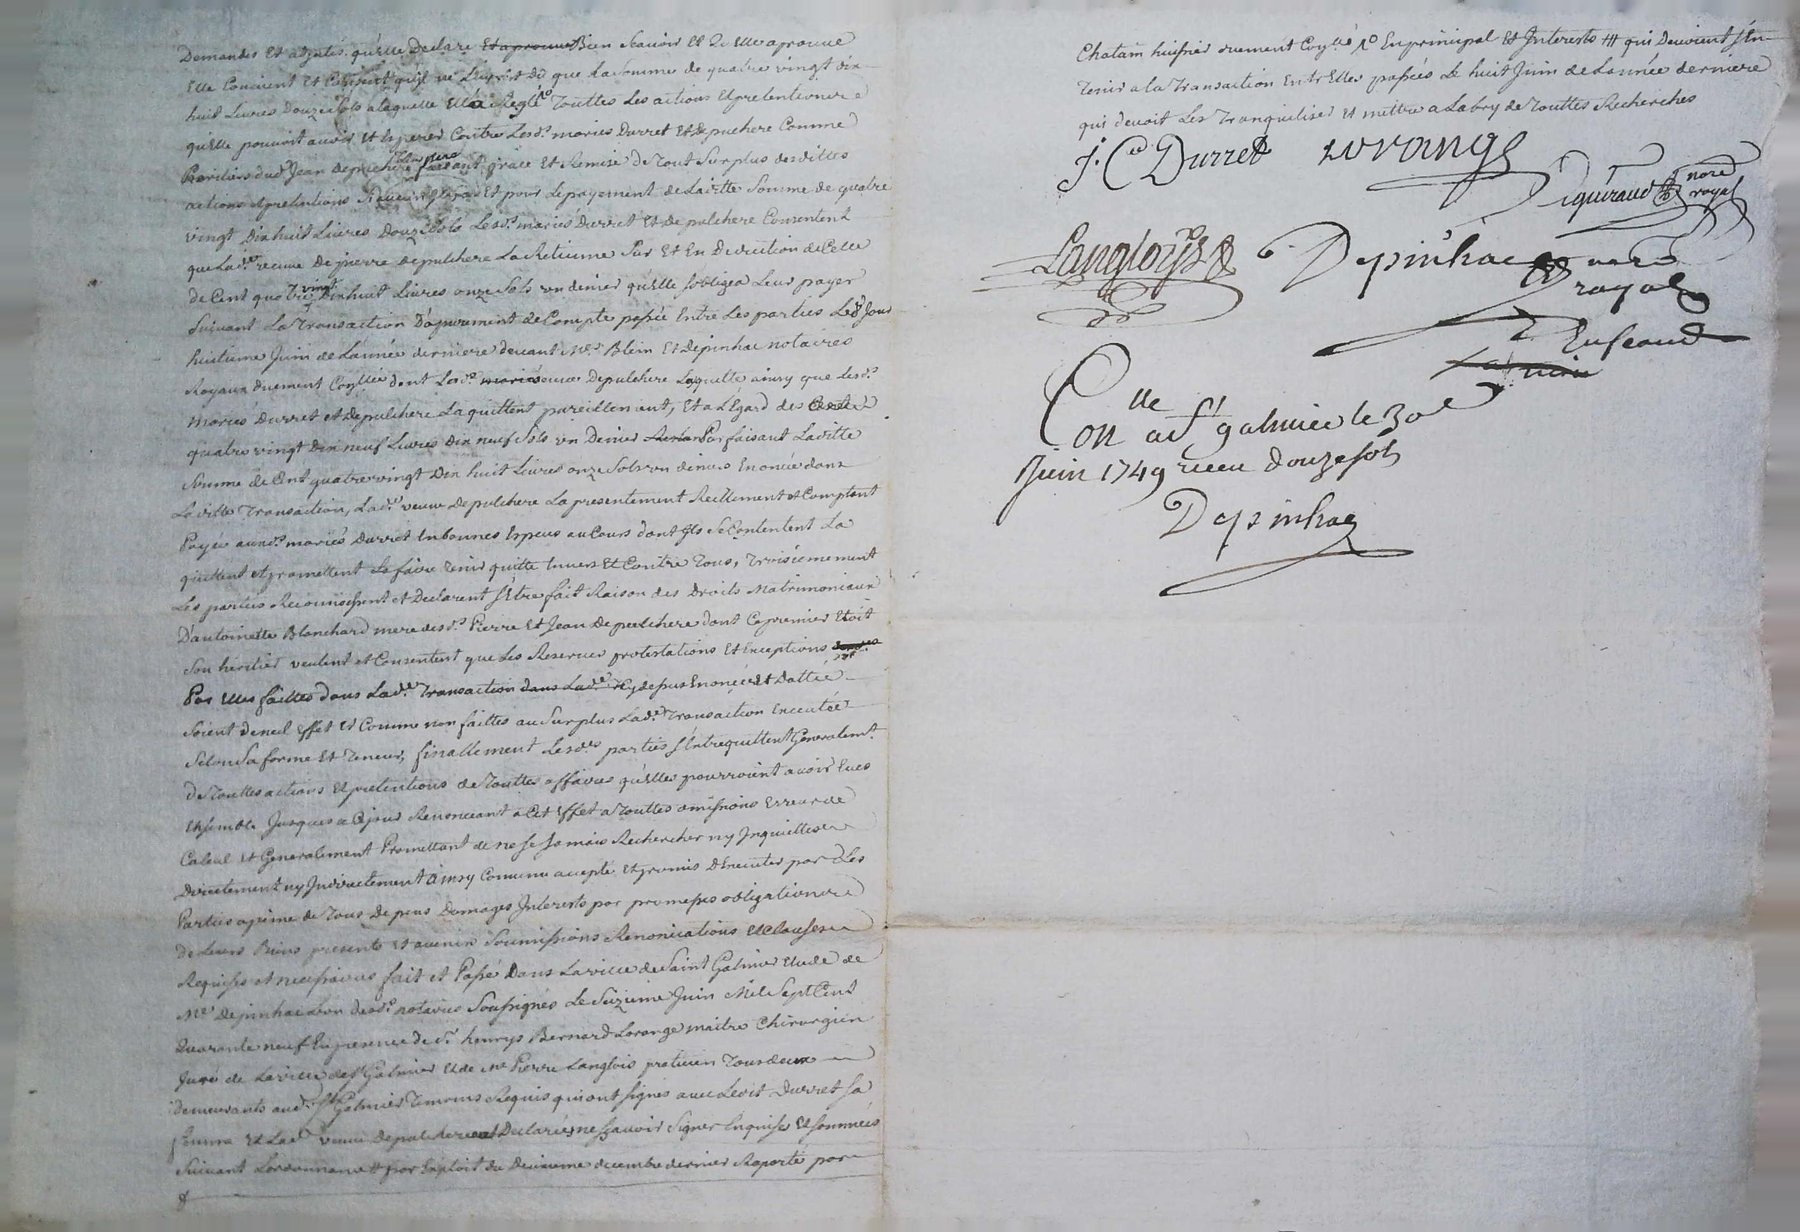 Demandes Et adjutés qu'elle Declare Et aprouve Bien Scavoir Et quelle aprouve
Elle Convient Et Consent qu'il ne luy soit Dû que la Somme de quatre vingt dix
huit Livres Douze Sols a laquelle Ella Reglé Touttes Les actions Et pretentions
qu'elle pouvoit avoir Et Esperer Contre Lesd. mariés Durret Et Depulchere Comme
heritiers dud Jean Depulchere faisant grace Et Remise de Tout Surplus desdittes
actions Et pretentions Et pour Le payement de Laditte Somme de quatre
vingt Dix huit Livres Douze Sols Lesd. mariés Durret Et Depulchere Consentent
que Lad. veuve De pierre Depulchere La Retienne Sur Et En Deduction de Celle
de Cent quatre vingt Dix huit Livres onze Sols un denier qu'elle s'obligea Leur payer
Suivant La Transaction D'apurement de Compte passée Entre Les parties Le Jour
huitieme Juin de L'année derniere devant Mes. Blein Et Depinhac notaires
Royaux duement Conllée dont Lad. mariés veuve Depulchere Laquelle ainsy que Lesd.
mariés Durret et Depulchere La quittent pareillement, Et a L'Egard des
quatre vingt Dix neuf Livres Dix neuf Sols un Denier Restans Parfaisant Laditte
Somme de Cent quatre vingt Dix huit Livres onze Sols un denier Enoncée dans
Laditte Transaction, Lad. veuve Depulchere La presentement Reellement et Comptant
Payée auxd. mariés Durret En bonnes Especes au Cours dont Ils Se Contentent La
quittent et promettent La faire Tenir quitte Envers Et Contre Tous, Troisiemement
Les parties Reconnoissent et Declarent s'Etre fait Raison des Droits Matrimoniaux
D'antoinette Blanchard mere desd. Pierre Et Jean Depulchere dont Ce premier Etoit
Son heritier veulent et Consentent que Les Reserves protestations Et Exceptions
Par Elles faittes dans Lad.e Transaction dans Lad.e Cy dessus Enoncée Et Dattée
Soient de nul Effet Et Comme non faittes au Surplus Lad.e Transaction Executée
Selon Sa forme Et Teneur, finallement Lesd.es parties s'Entrequittent Generalemt.
de Touttes actions Et pretentions de Touttes affaires qu'Elles pourroient avoir Eues
Ensemble Jusques a Ce jour Renonceant a Cet Effet a Touttes omissions Erreur de
Calcul Et Generalement Promettant de ne se Jamais Rechercher ny Inquietter
Directement ny Indirectement ainsy Convenu accepté Et promis D'Executer par Les
Parties a peine de Tous Depens Domages Interests par promesses obligations
de Leurs Biens presents Et avenir Soumissions Renonciations Et Clauses
Requises et necessaires fait et Passé Dans La ville de Saint Galmier Etude de
Me. Depinhac L'un desd. notaires Soussignés Le Seizieme Juin Mil Sept Cent
Quarante neuf En presence de Sr. henrys Bernard Lorange maitre Chirurgien
Juré de La ville de St Galmier Et de Me Pierre Langlois praticien Tous deux
demeurants aud. St Galmier Temoins Requis qui ont signés avec Ledit Durret sa
femme Et Lad. veuve Depulchere ont Declarées ne sçavoir Signer Enquises Et Sommées
Suivant L'ordonnance # par Exploit du Deuxieme decembre dernier Raporté par
Chatain huissier duement Conllé En principal Et Interests # qui Devoient s'En
Tenir a La Transaction Entr'Elles passées Le huit Juin de L'année derniere
qui devoit Les Tranquiliser Et mettre a L'abry de Touttes Recherches
J. C Durret Lorange
Piquiraud nore royal
Langlois Depinhac nore royal
Con.lle a St galmier le 30e
Juin 1749 receu douze sols
Depinhac